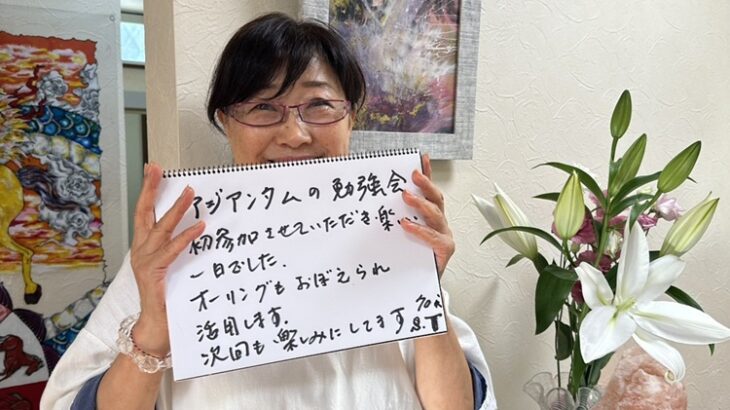 アジアンタムの勉強会
初参加させていただき楽しい
一日でした.
オーリングもおぼえられ
活用します.
次回も楽しみにしてます
S.T